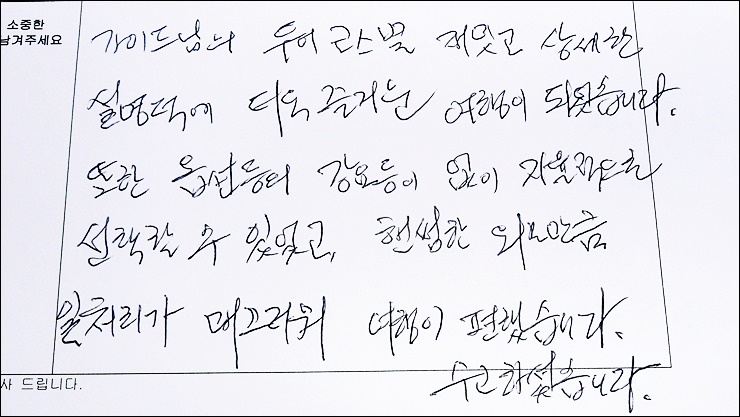 소중한
남겨주세요
가이드님의 투어 코스별 재밌고 상세한
설명덕에 더욱 즐거운 여행이 되었습니다.
또한 옵션등의 강요등이 없이 자율적으로
선택할 수 있었고, 훤씽한 외모만큼
일처리가 매끄러워 여행이 편했습니다.
수고하셨습니다.
사 드립니다.